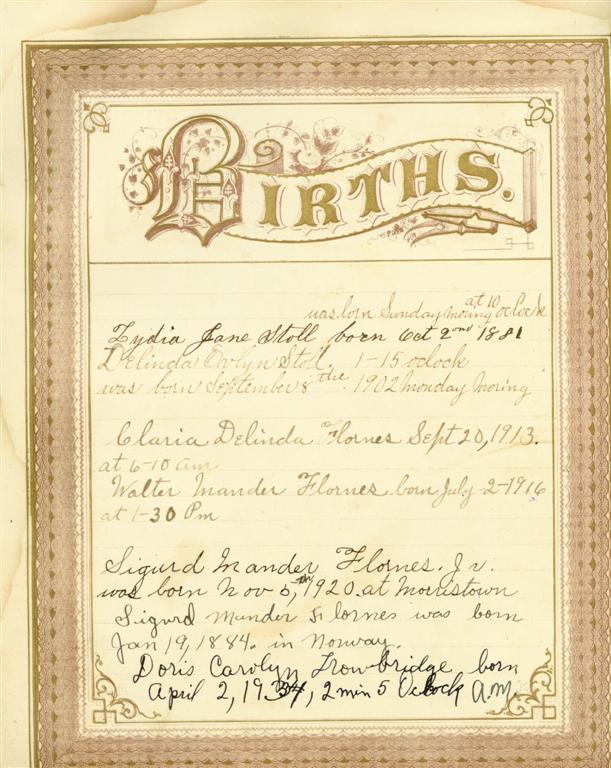 BIRTHS.
at 10
was born Sunday moring oclock
Lydia Jane Stoll born Oct 2nd 1881
Delinda Ovlyn Stoll, 1-15 oclock
was born September 8 the 1902 monday moring
Claria Delinda Flornes Sept 20, 1913.
at 6-10 am
Walter Mander Flornes born July-2-1916
at 1-30 Pm
Sigurd Mander Flornes. Jr.
was born Nov 5,th 1920. at Morristown
Sigurd Mander Flornes was born
Jan 19, 1884. in Norway.
Doris Carolyn Trowbridge, born
April 2, 1934, 2 min 5 Oclock A.M.